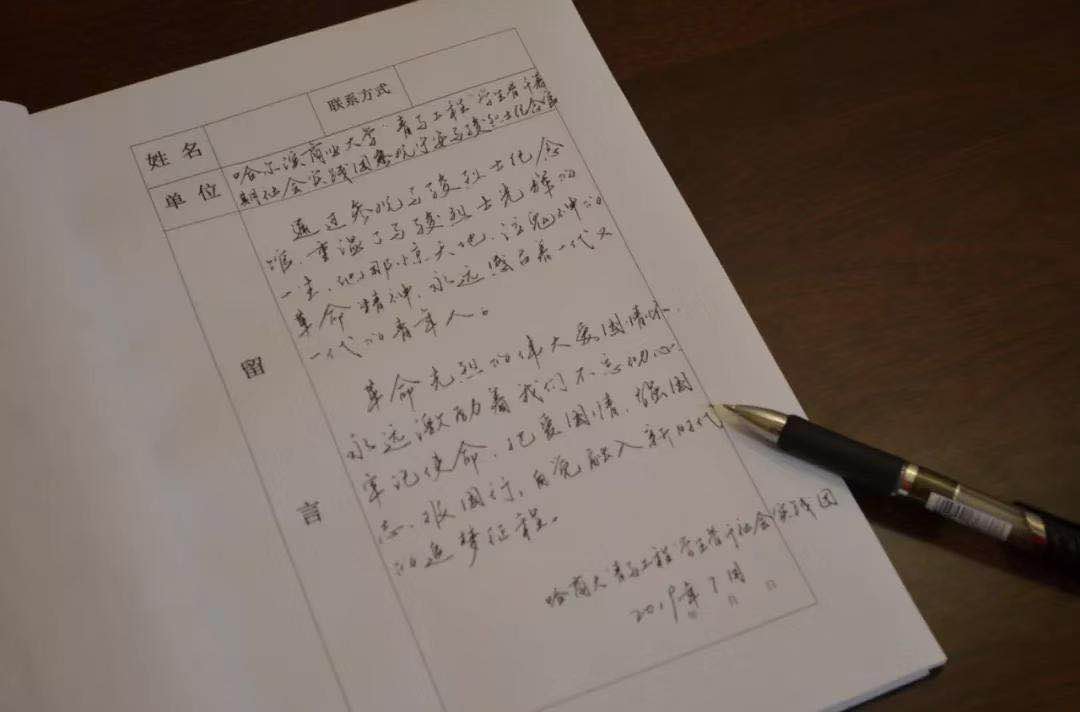 姓名
联系方式
单位
哈尔滨商业大学“青马工程”学生骨干暑
期社会实践团参观宁安马骏烈士纪念馆
留言
通过参观马骏烈士纪念
馆,重温了马骏烈士光辉的
一生,他那惊天地、泣鬼神的
革命精神,永远感召着一代又
一代的青年人。
革命先烈的伟大爱国情怀,
永远激励着我们不忘初心、
牢记使命,把爱国情、强国
志、报国行,自觉融入新时代
的追梦征程。
哈商大“青马工程”学生骨干社会实践团
2019年7月
年 月 日